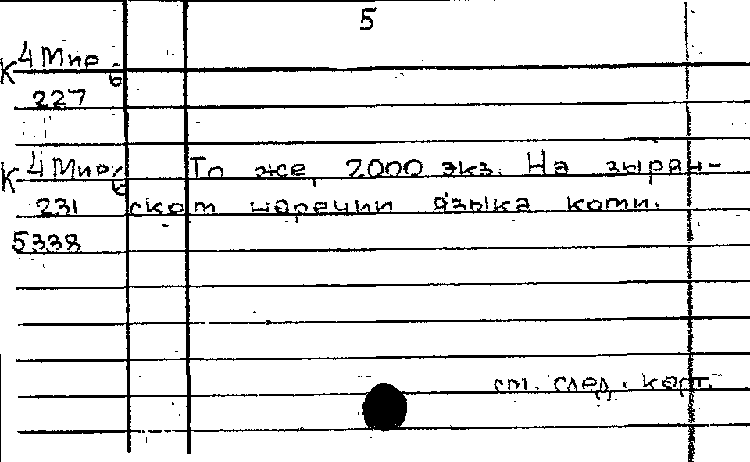 5
К 4 Мир
6
227
К 4 Мир/6 То же, 2000 экз. На зырян-
231 ском наречии языка коми.
5338
см. след. карт.